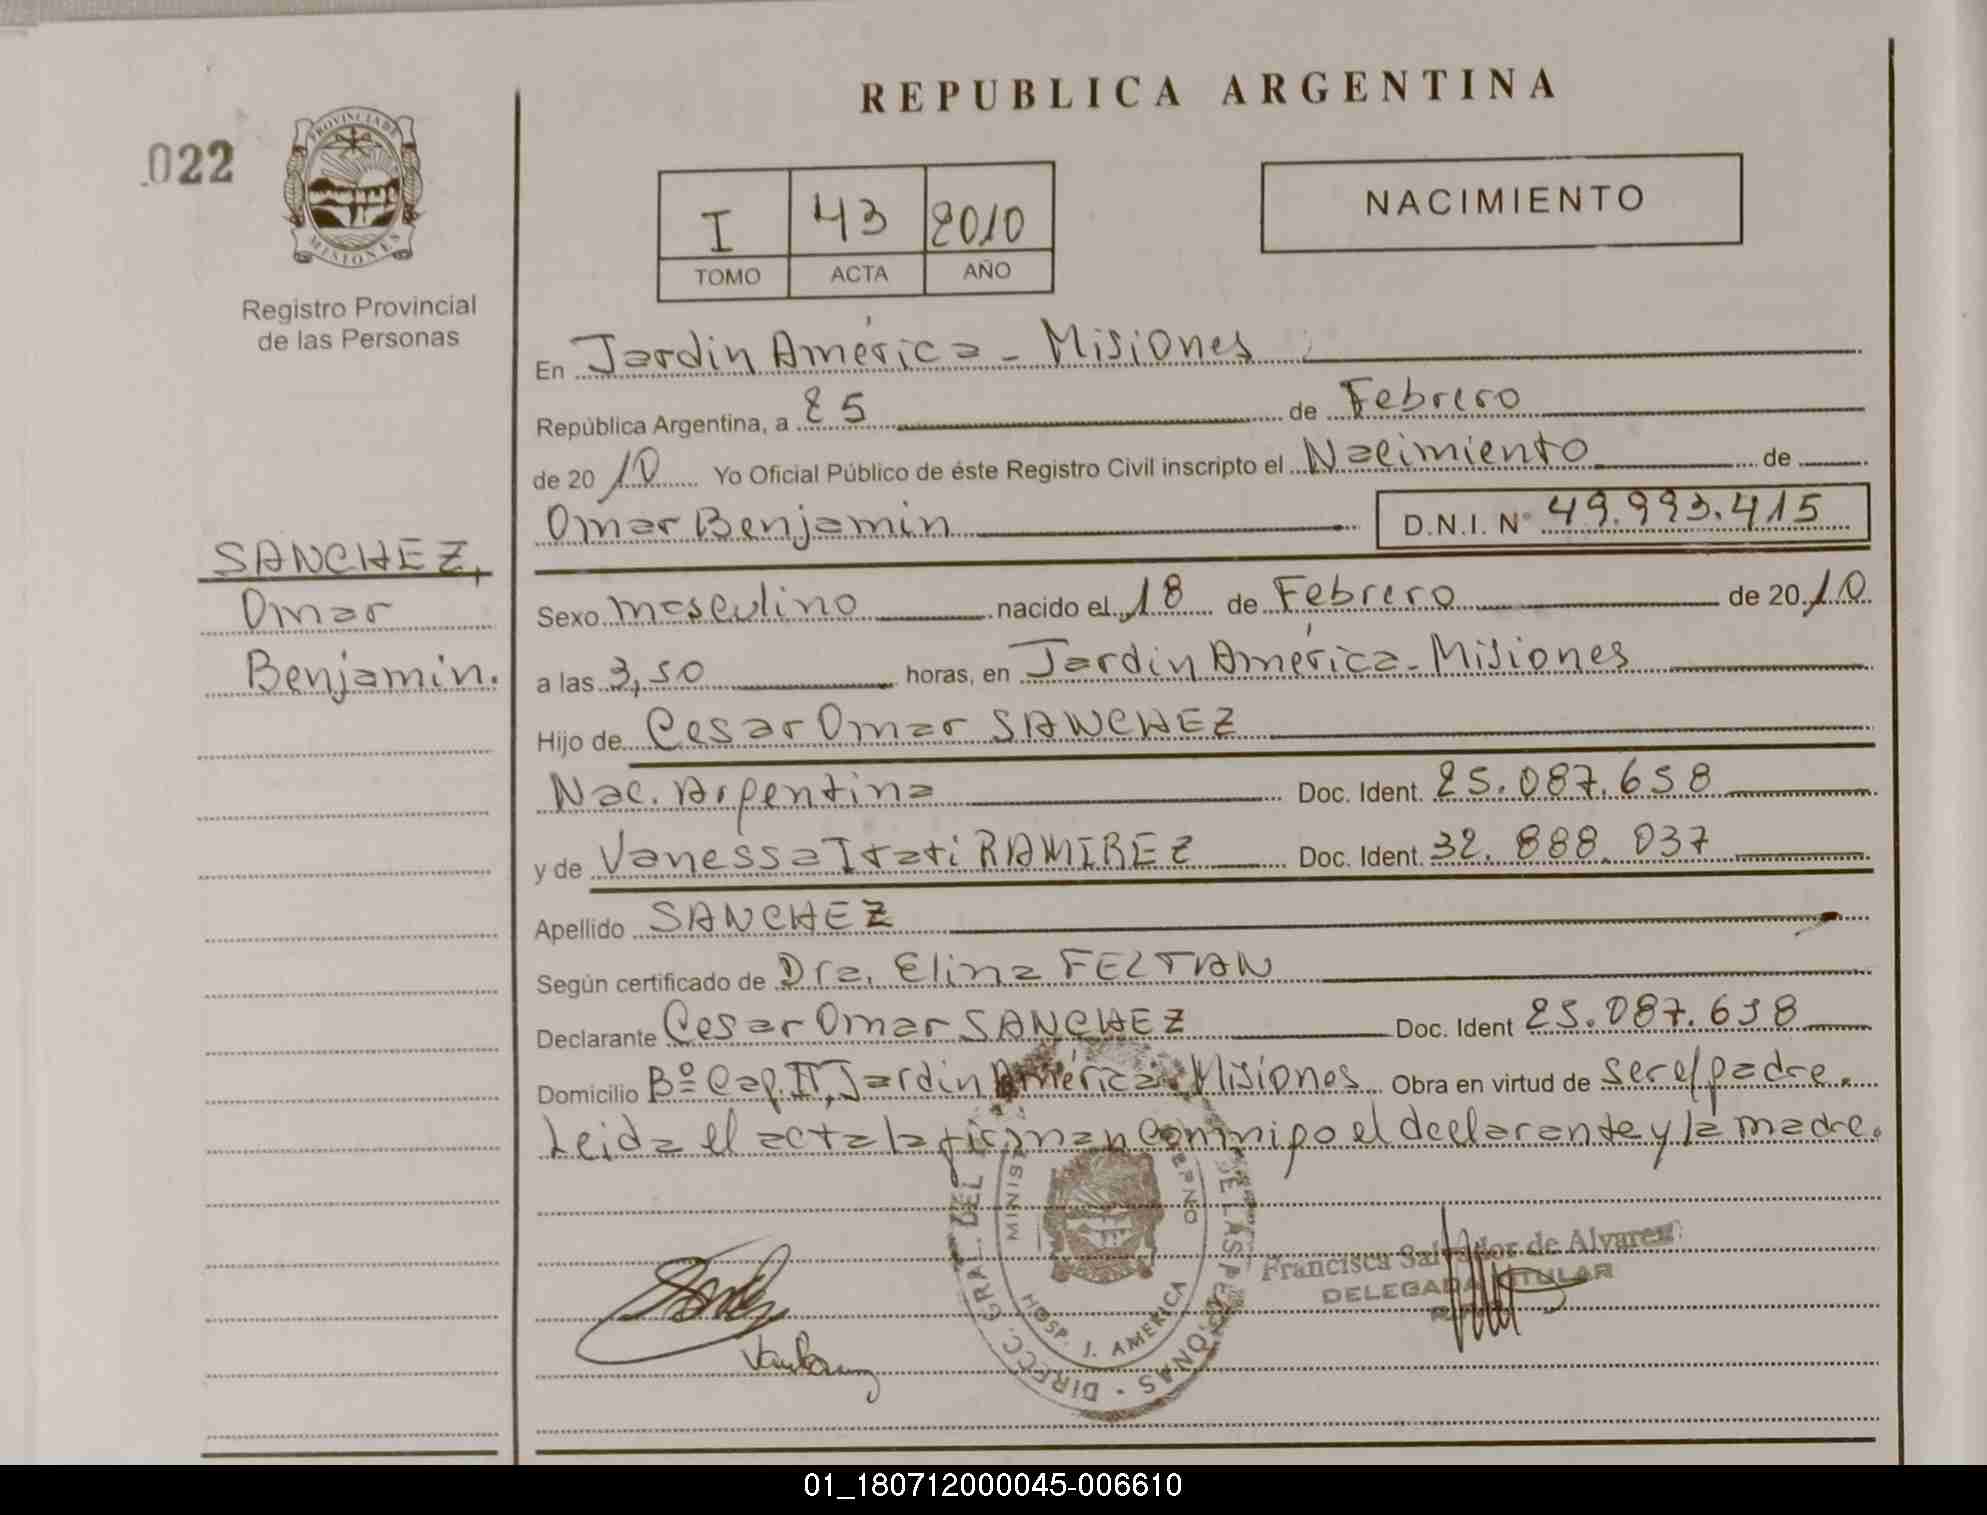 REPUBLICA ARGENTINA
022
PROVINCIA DE
MISIONES
Registro Provincial
de las Personas
I 43 2010
TOMO ACTA AÑO
NACIMIENTO
En Jardin América - Misiones
República Argentina, a 25 de Febrero
de 20 10 Yo Oficial Público de éste Registro Civil inscripto el Nacimiento de
Omar Benjamin D.N.I. N° 49.993.415
SANCHEZ,
Omar
Benjamin.
Sexo masculino nacido el 18 de Febrero de 20 10
a las 3,50 horas, en Jardin América - Misiones
Hijo de Cesar Omar SANCHEZ
Nac. Argentina Doc. Ident. 25.087.658
y de Vanessa Itati RAMIREZ Doc. Ident. 32.888.037
Apellido SANCHEZ
Según certificado de Dra. Elina FELTAN
Declarante Cesar Omar SANCHEZ Doc. Ident 25.087.658
Domicilio Bº Cap. II, Jardin América Misiones Obra en virtud de ser el padre.
Leida el acta la firman conmigo el declarante y la madre.
DIRECC. GRAL. DEL DE LAS PERSONAS
HOSP. J. AMERICA
Francisca Salvador de Alvarez
DELEGADA TITULAR
01_180712000045-006610